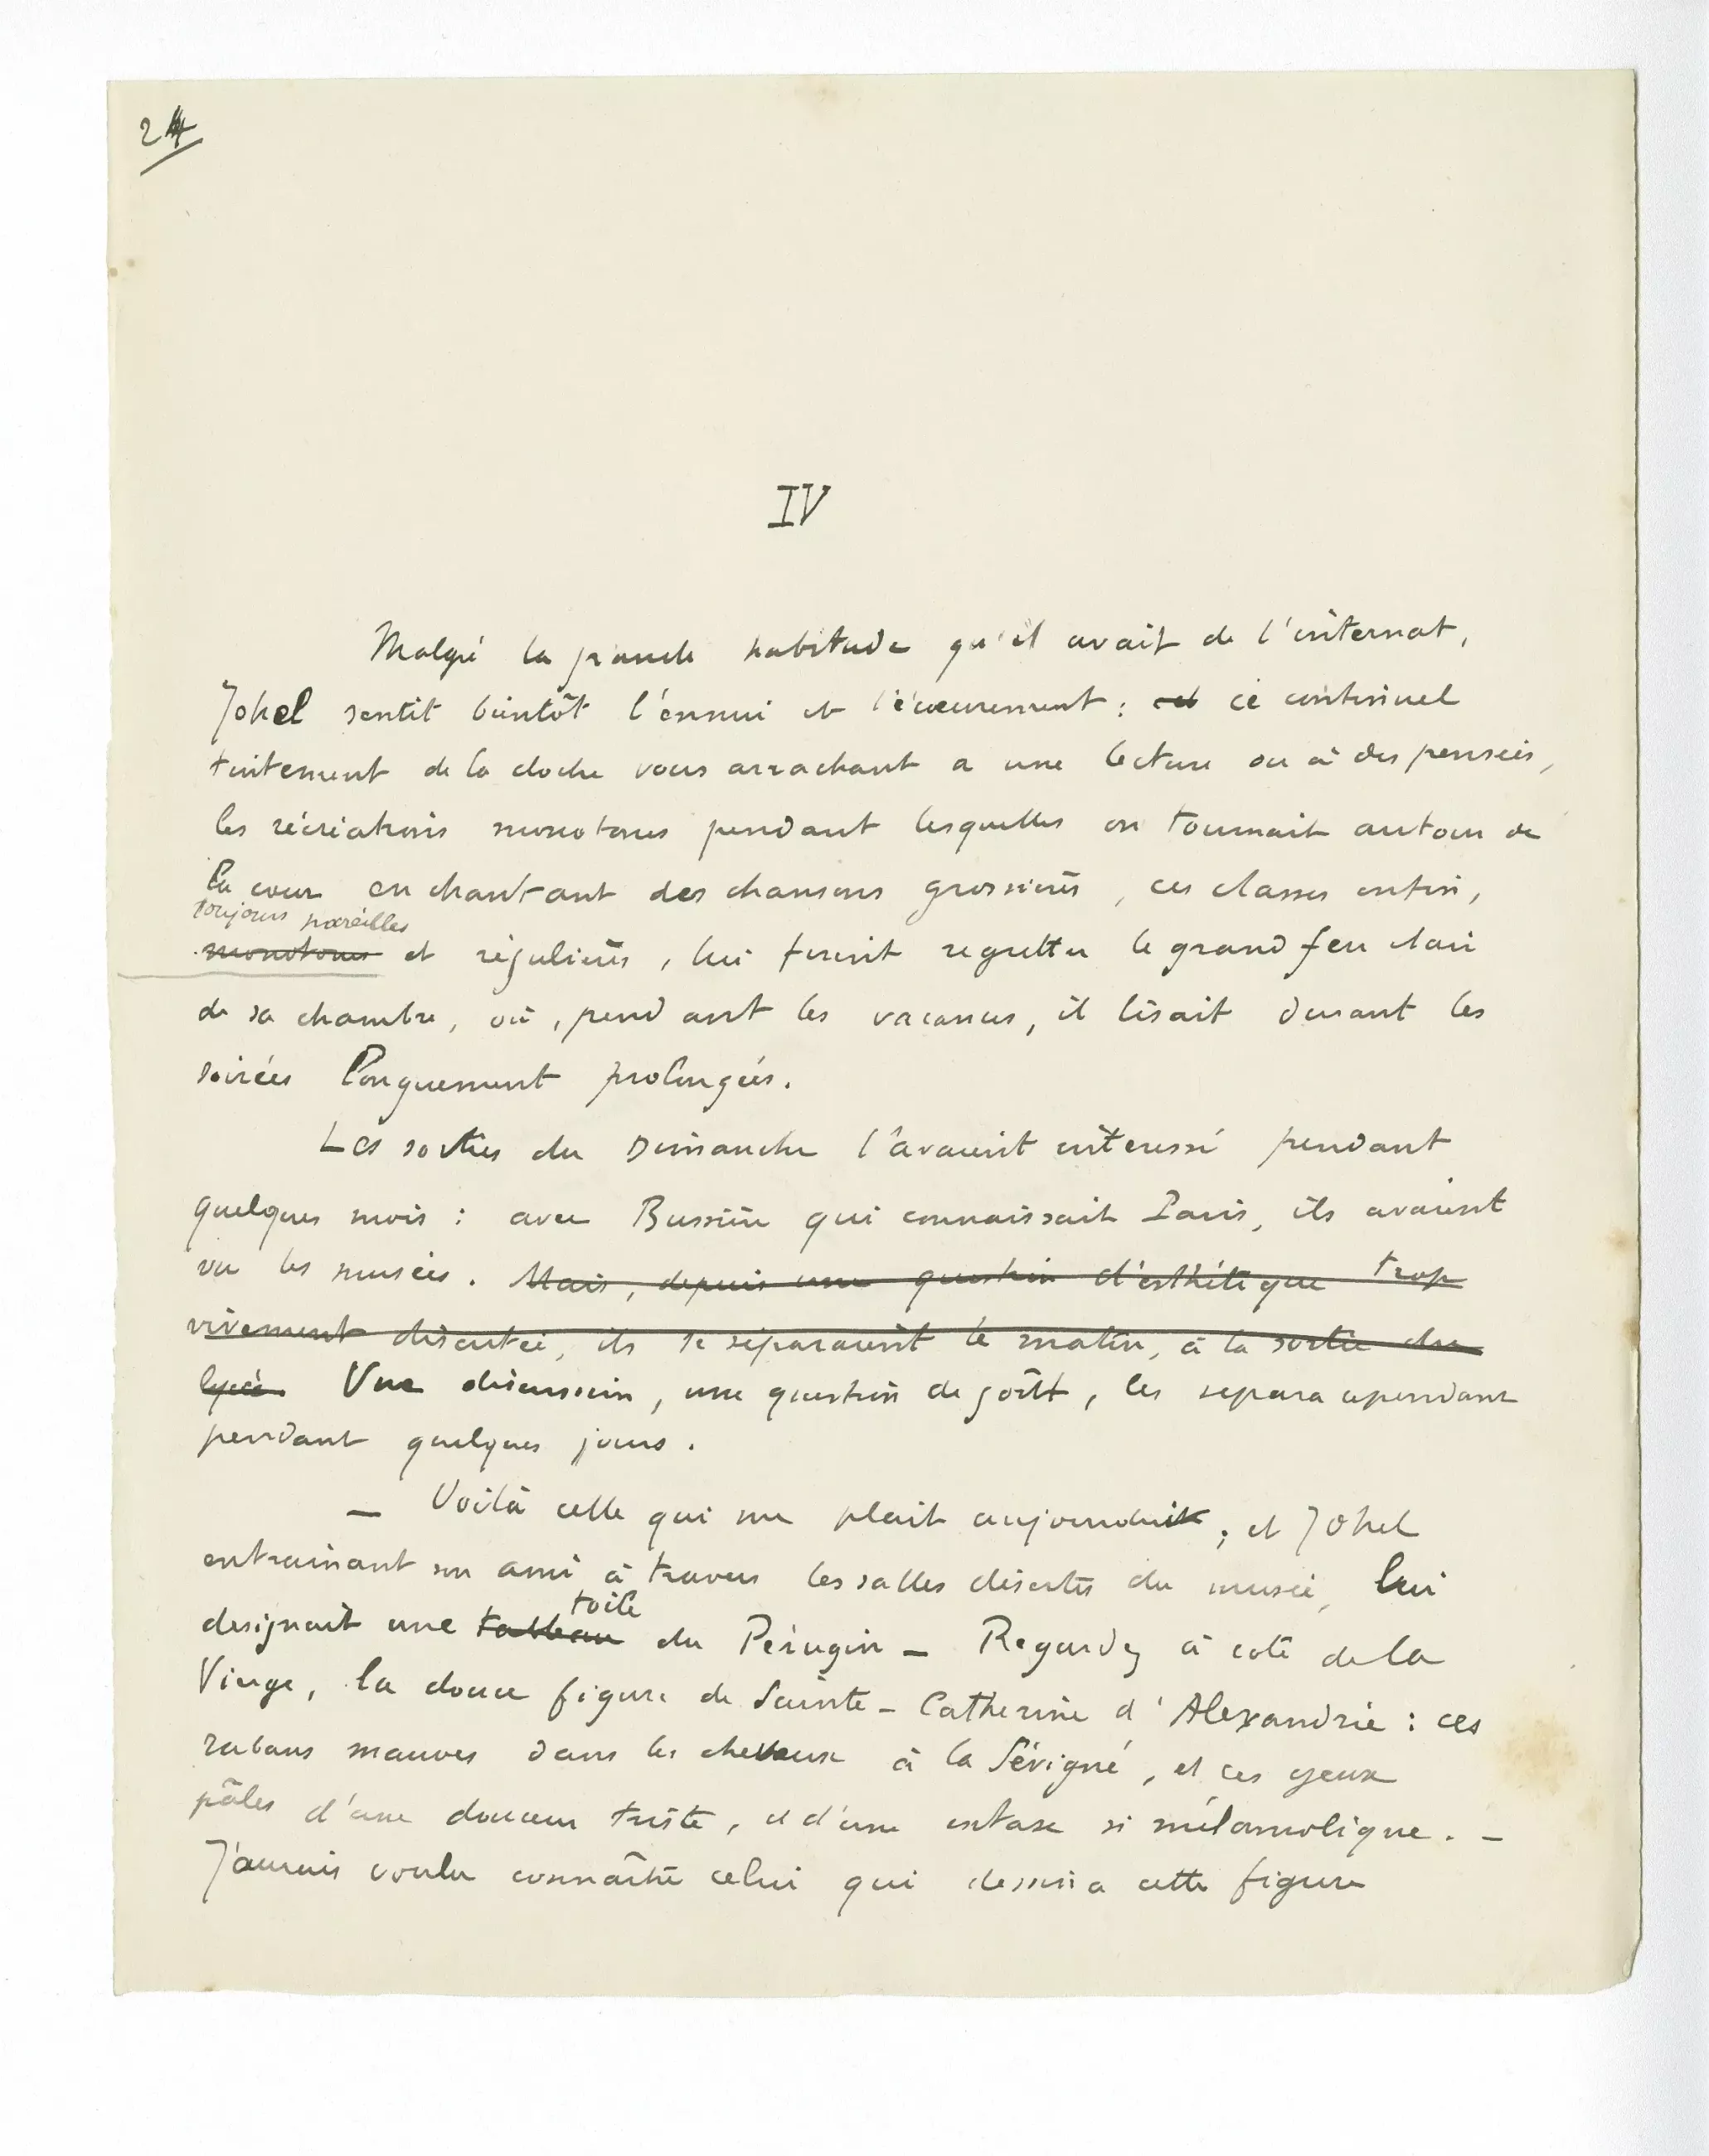 24
IV
Malgré la grande habitude qu'il avait de l'internat,
Johel sentit bientôt l'ennui et l'écœurement : ce continuel
tintement de la cloche vous arrachant a une lecture ou à des pensées,
les récréations monotones pendant lesquelles on tournait autour de
la cour en chantant des chansons grossières, ces classes enfin,
toujours pareilles
monotones et régulières, lui firent regretter le grand feu clair
de sa chambre, où, pendant les vacances, il lisait durant les
soirées longuement prolongées.
Les sorties du Dimanche l'avaient intéressé pendant
quelques mois : avec Bussière qui connaissait Paris, ils avaient
vu les musées. Mais, depuis une question d'esthétique trop
vivement discutée, ils se séparaient le matin, à la sortie du
lycée. Une discussion, une question de goût, les separa cependant
pendant quelques jours.
— Voilà celle qui me plait aujourduit ; et Johel
entrainant son ami à travers les salles désertes du musée, lui
designait une tableau
toile
du Pérugin — Regardez à coté de la
Vierge, la douce figure de Sainte-Catherine d'Alexandrie : ces
rubans mauves dans les cheveux à la Sévigné, et ces yeux
pâles d'une douceur triste, et d'une extase si mélancolique. —
J'aurais voulu connaître celui qui dessina cette figure